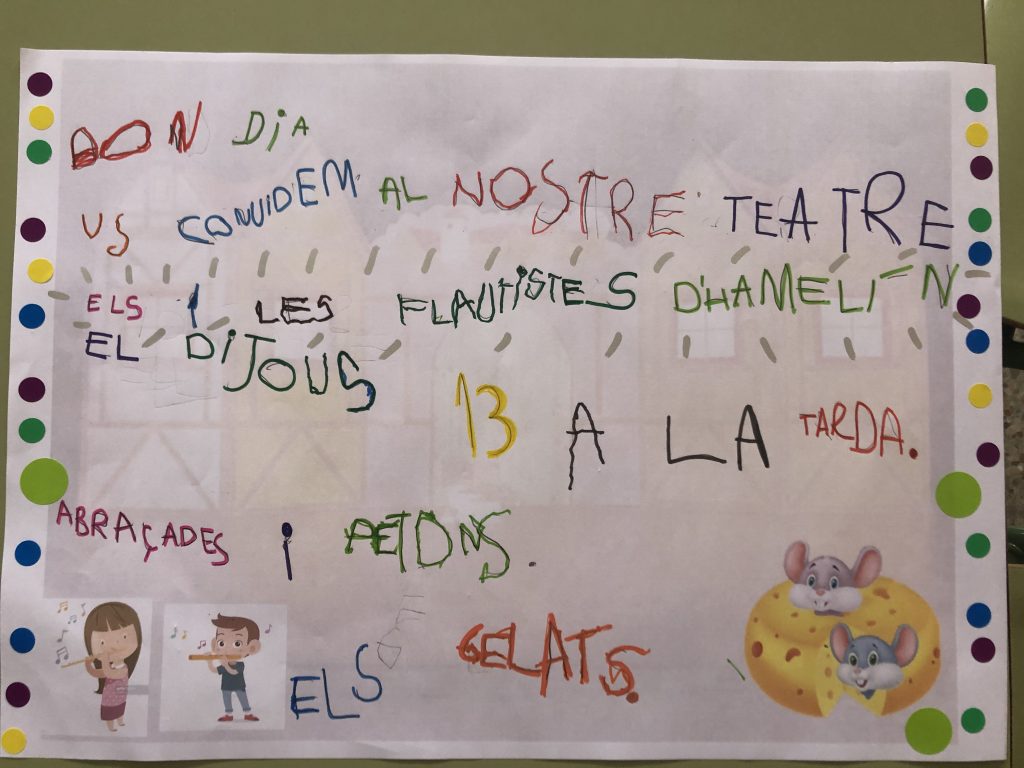 BON DiA
US CONVIDEM AL NOSTRE TEATRE
ELS I LES FLAUTISTES D'HAMELÍN
EL DIJOUS 13 A LA TARDA.
ABRAÇADES I PETONS.
ELS GELATS.